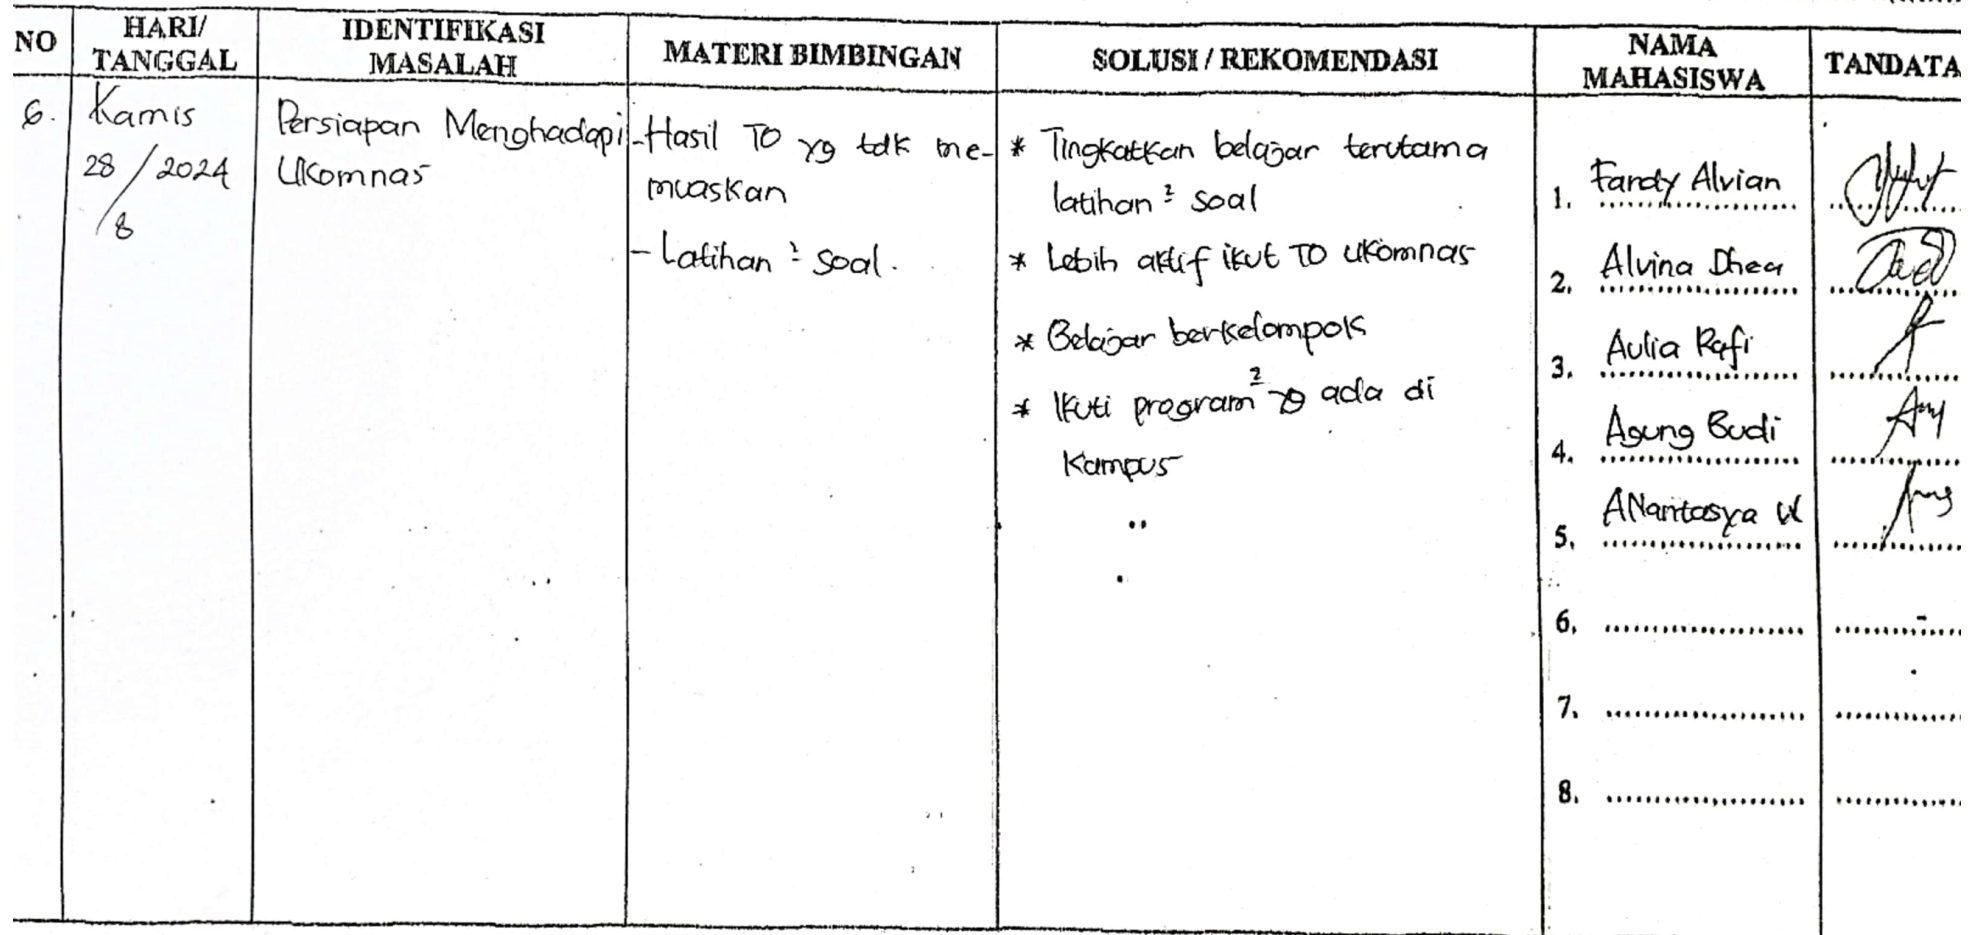 NO
HARI/
TANGGAL
IDENTIFIKASI
MASALAH
MATERI BIMBINGAN
SOLUSI / REKOMENDASI
NAMA
MAHASISWA
TANDATA
6.
Kamis
28/8/2024
Persiapan Menghadapi
Ukomnas
- Hasil TO yg tdk me-
muaskan
- Latihan ² soal.
* Tingkatkan belajar terutama
latihan ² soal
* Lebih aktif ikut TO Ukomnas
* Belajar berkelompok
* Ikuti program ² yg ada di
Kampus
1. Fardy Alvian
2. Alvina Dhea
3. Aulia Rafi
4. Agung Budi
5. ANantasya W
6.
7.
8.